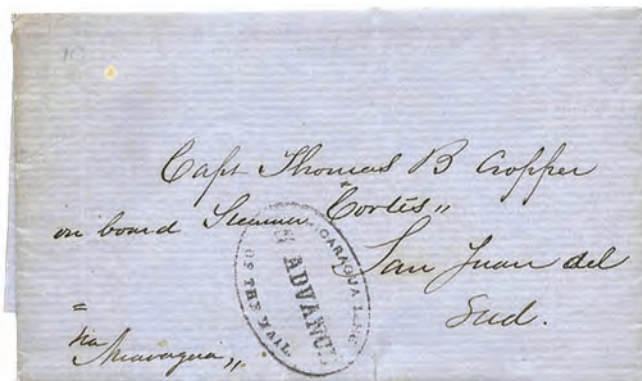 Capt Thomas B Cropper
on board Steamer "Cortes"
San Juan del
Sud.
=
Via
Nicaragua,,
NICARAGUA LINE
IN ADVANCE
OF THE MAIL